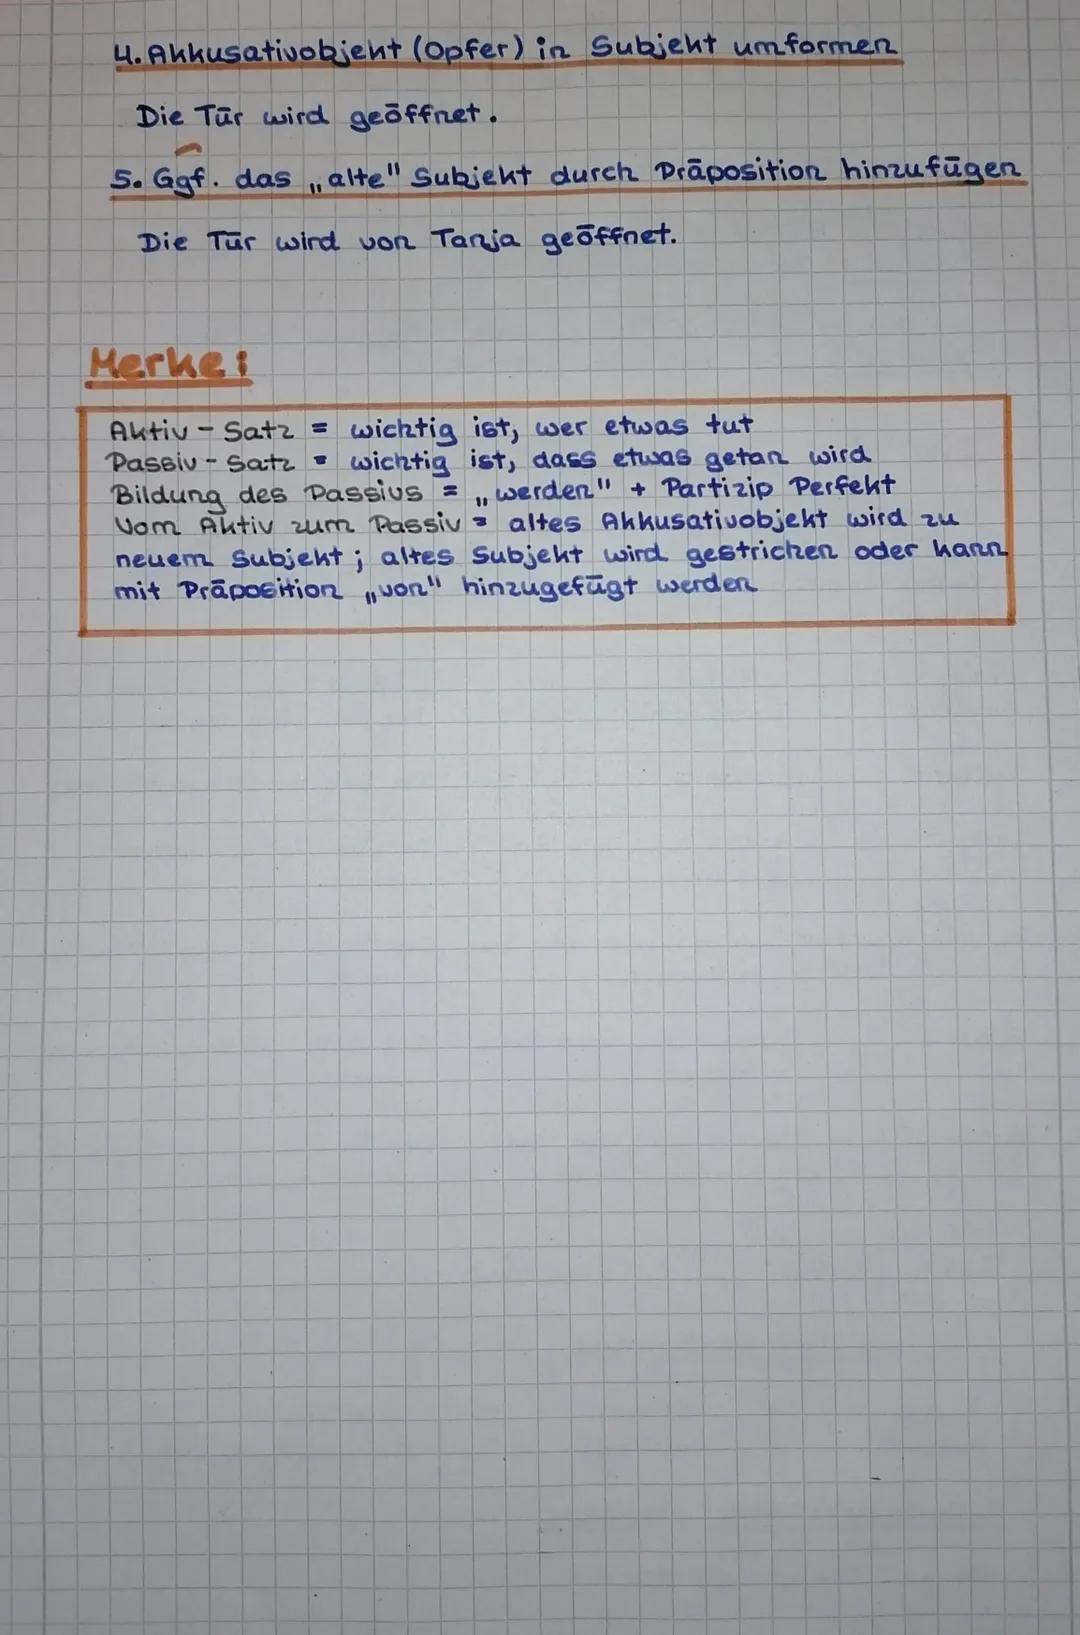 4. Akkusativobjekt (Opfer) in Subjekt umformen
Die Tür wird geöffnet.
5. Ggf. das „alte" Subjekt durch Präposition hinzufügen
Die Tür wird von Tanja geöffnet.
Merke:
Aktiv - Satz = wichtig ist, wer etwas tut
Passiv - Satz = wichtig ist, dass etwas getan wird
Bildung des Passivs = „werden" + Partizip Perfekt
Vom Aktiv zum Passiv = altes Akkusativobjekt wird zu
neuem Subjekt; altes Subjekt wird gestrichen oder kann
mit Präposition „von" hinzugefügt werden